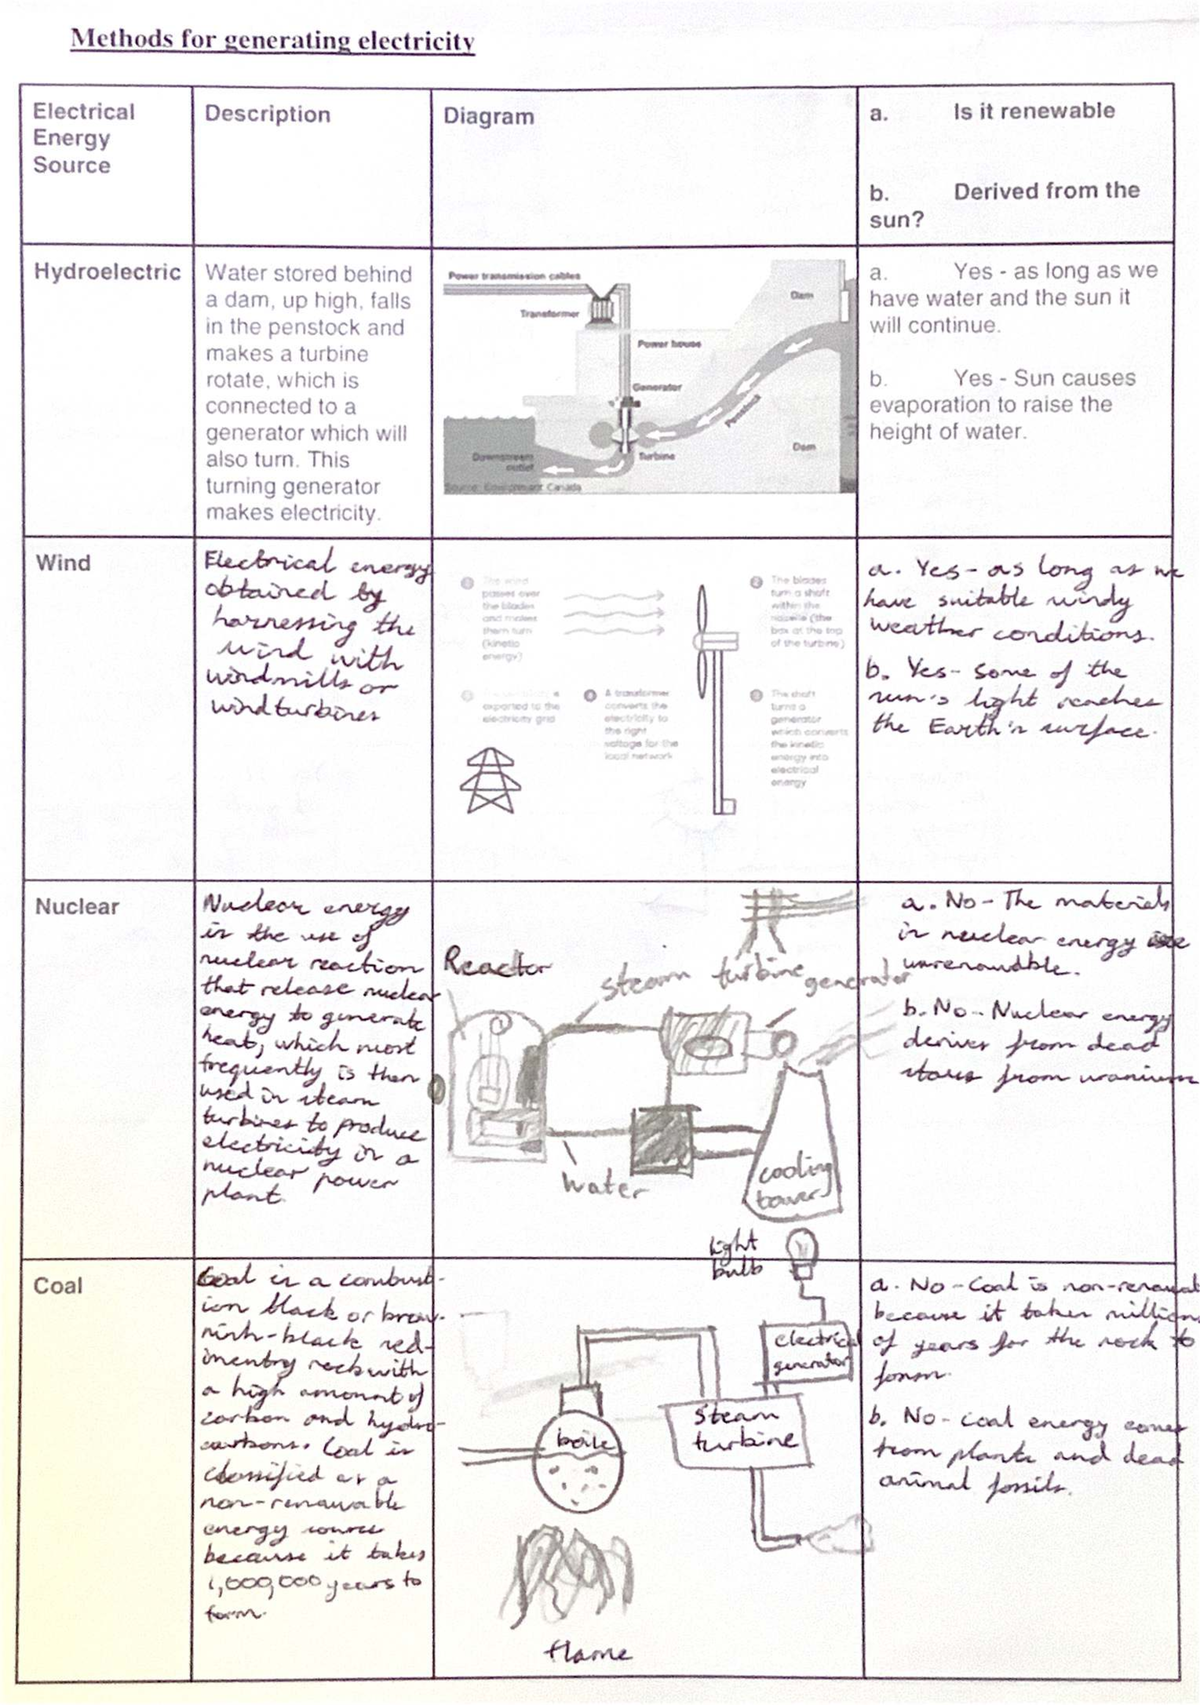 Methods for generating electricity
Electrical
Energy
Source
Description
Diagram
a. Is it renewable
b. Derived from the
sun?
Hydroelectric
Water stored behind
a dam, up high, falls
in the penstock and
makes a turbine
rotate, which is
connected to a
generator which will
also turn. This
turning generator
makes electricity.
Power transmission cables
Transformer
Dam
Power house
Generator
Penstock
Turbine
Downstream
outlet
Dam
Source: Environment Canada
a. Yes - as long as we
have water and the sun it
will continue.
b. Yes - Sun causes
evaporation to raise the
height of water.
Wind
Electrical energy
obtained by
harnessing the
wind with
windmills or
wind turbines
1 The wind
passes over
the blades
and makes
them turn
(kinetic
energy)
2 The blades
turn a shaft
within the
nacelle (the
box at the top
of the turbine)
exported to the
electricity grid
A transformer
converts the
electricity to
the right
voltage for the
local network
3 The shaft
turns a
generator
which converts
the kinetic
energy into
electrical
energy
a. Yes - as long as we
have suitable windy
weather conditions.
b. Yes - Some of the
sun's light reaches
the Earth's surface.
Nuclear
Nuclear energy
is the use of
nuclear reaction
that release nuclear
energy to generate
heat, which most
frequently is then
used in steam
turbines to produce
electricity in a
nuclear power
plant.
Reactor
steam turbine
generator
water
cooling
tower
a. No - The materials
in nuclear energy
unrenewable.
b. No - Nuclear energy
derives from dead
stars from uranium
Coal
Coal is a combust-
ion black or brow-
nish-black sed-
imentry rock with
a high amount of
carbon and hydro-
carbons. Coal is
classified as a
non-renewable
energy source
because it takes
1,000,000 years to
form.
light
bulb
electrical
generator
steam
turbine
boile
flame
a. No - Coal is non-renewal
because it takes million
of years for the rock to
form.
b. No - coal energy comes
from plants and dead
animal fossils.